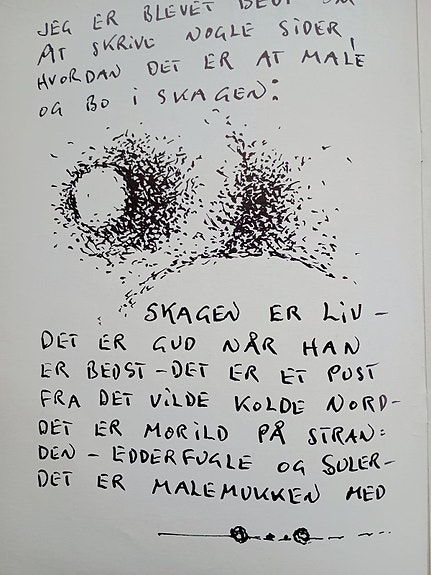 JEG ER BLEVET BEDT OM
AT SKRIVE NOGLE SIDER,
HVORDAN DET ER AT MALE
OG BO I SKAGEN:
SKAGEN ER LIV -
DET ER GUD NÅR HAN
ER BEDST - DET ER ET PUST
FRA DET VILDE KOLDE NORD -
DET ER MORILD PÅ STRAN=
DEN - EDDERFUGLE OG SULER -
DET ER MALEMUKKEN MED